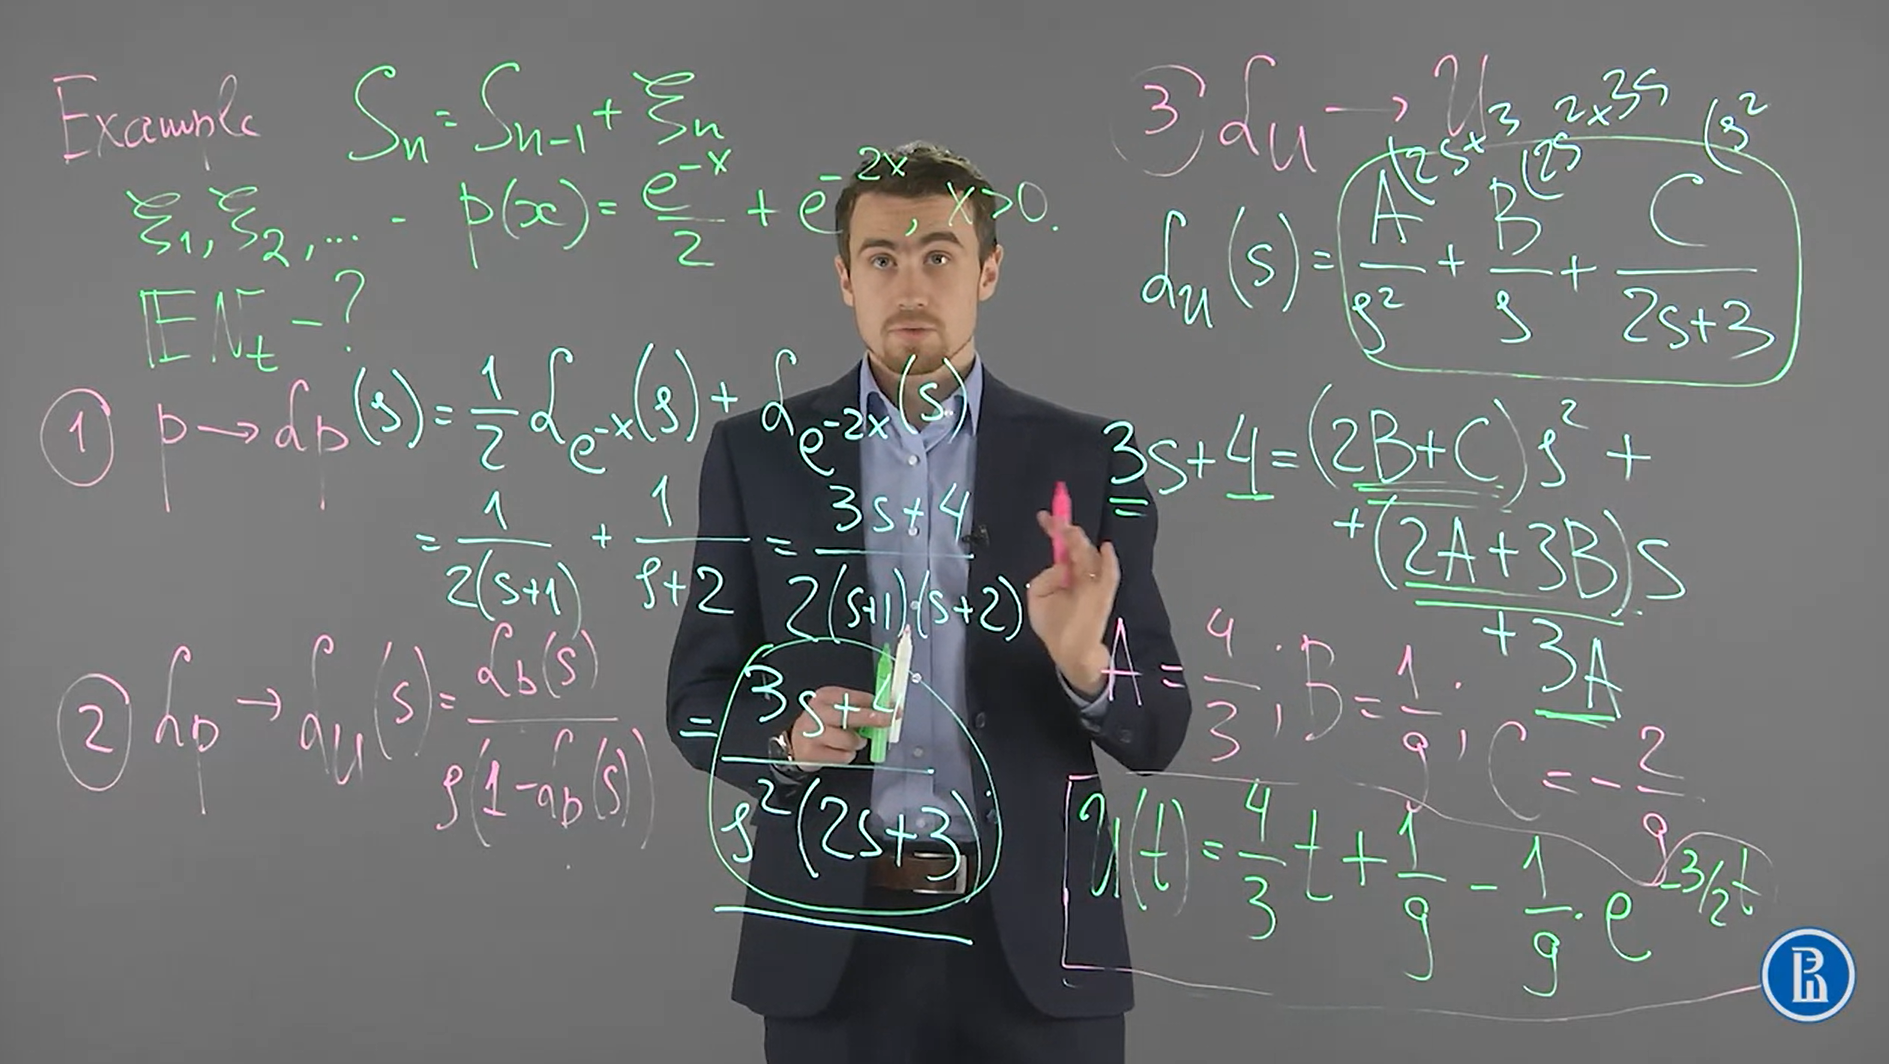 Example Sₙ = Sₙ₋₁ + ξₙ
ξ₁, ξ₂, ... - p(x) = e^{-x}/2 + e^{-2x}, x>0.
𝔼Nₜ - ?
① p → ℒp(s) = 1/2 ℒ_{e^{-x}}(s) + ℒ_{e^{-2x}}(s)
= 1/(2(s+1)) + 1/(s+2) = (3s+4)/(2(s+1)(s+2))
② ℒp → ℒu(s) = ℒp(s)/(s(1-ℒp(s)))
= (3s+4)/(s²(2s+3))
③ ℒu → U
(2s+3 (2s 2×3s (s²
ℒu(s) = A/s² + B/s + C/(2s+3)
3s+4 = (2B+C)s² +
+(2A+3B)s
+3A
A = 4/3; B = 1/9; C = -2/9
U(t) = 4/3 t + 1/9 - 1/9 · e^{-3/2 t}